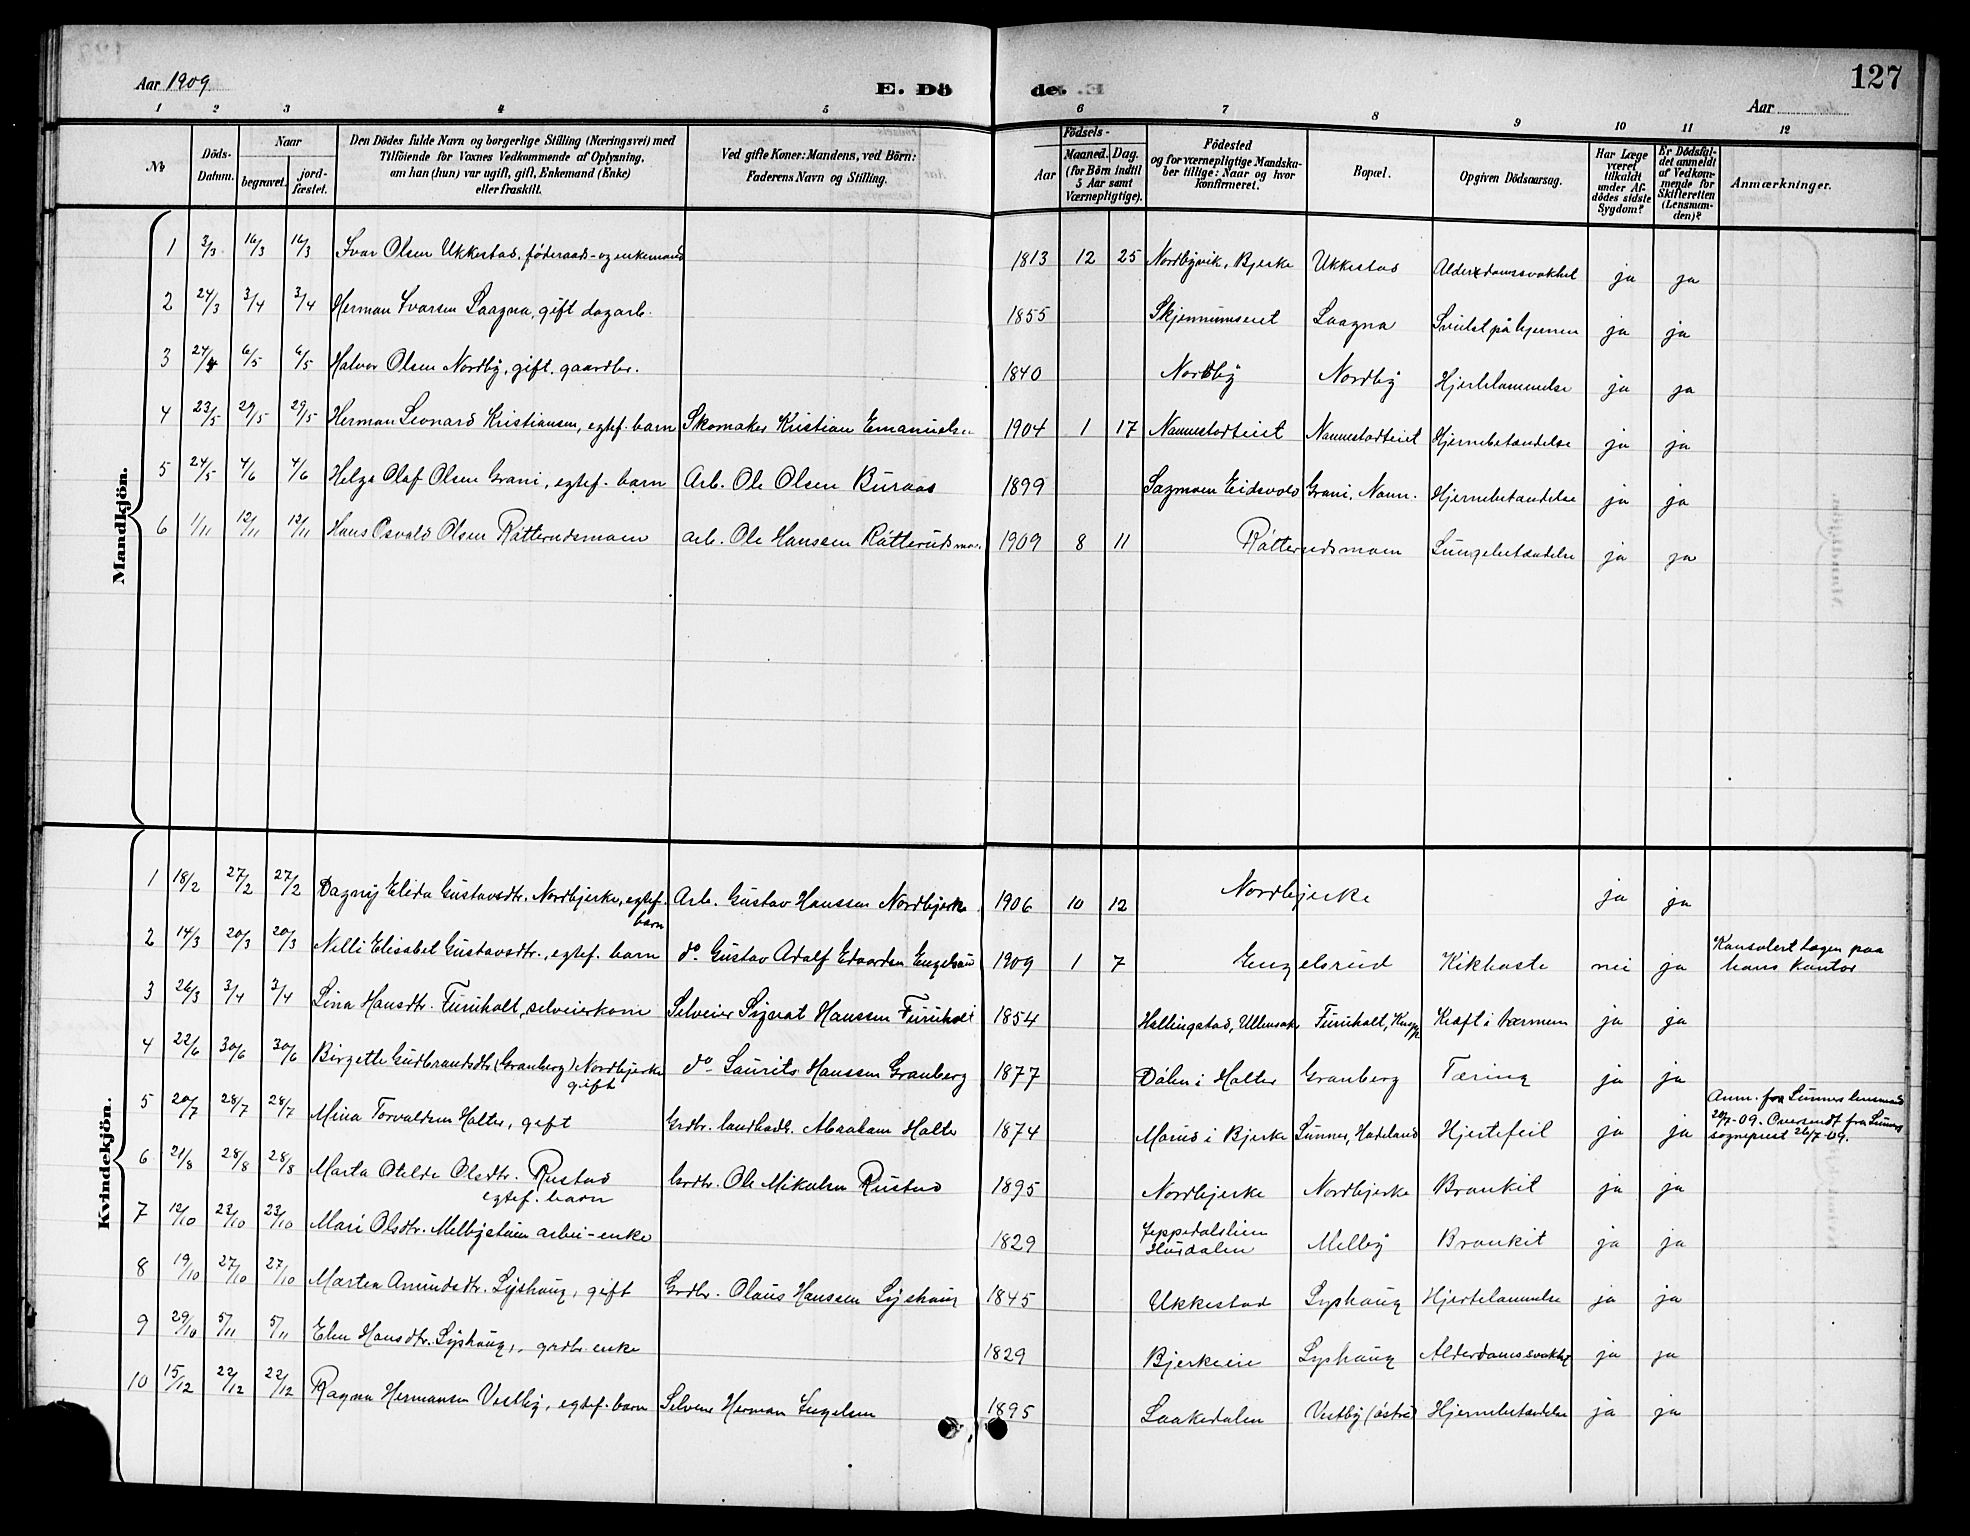 Aar 1909
E. Dö
de.
Aar
127
1 2 3 4 5 6 7 8 9 10 11 12
No
Döds-Datum.
Naar
begravet.
jord-fæstet.
Den Dödes fulde Navn og borgerlige Stilling (Næringsvei) med
Tilföiende for Voxnes Vedkommende af Oplysning,
om han (hun) var ugift, gift, Enkemand (Enke)
eller fraskilt.
Ved gifte Koner: Mandens, ved Börn:
Faderens Navn og Stilling.
Födsels-
Aar
Maaned. Dag.
(for Börn indtil
5 Aar samt
Værnepligtige).
Födested
og for værnepligtige Mandska-
ber tillige: Naar og hvor
konfirmeret.
Bopæl.
Opgiven Dödsaarsag.
Har Læge
været
tilkaldt
under Af-
dödes sidste
Sygdom?
Er Dödsfal-
det anmeldt
af Vedkom-
mende for
Skifteretten
(Lensman-
den)?
Anmærkninger.
Mandkjön.
1 3/3 16/3 16/3 Ivar Olsen Ukkestad, føderaads- og enkemand 1813 12 25 Nordbyvik, Bjerke Ukkestad Alderdomssvakhet ja ja
2 24/3 3/4 3/4 Herman Ivarsen Laagna, gift dagarb. 1855 Skjennumseiet Laagna Svulst på hjernen ja ja
3 24/4 6/5 6/5 Halvor Olsen Nordby, gift. gaardbr. 1840 Nordby Nordby Hjertelammelse ja ja
4 23/5 29/5 29/5 Herman Leonard Kristiansen, egtef. barn Skomaker Kristian Emanuelsen 1904 1 17 Nannestadteiet Nannestadteiet Hjernebetændelse ja ja
5 24/5 4/6 4/6 Helge Olaf Olsen Grani, egtef. barn Arb. Ole Olsen Buraas 1899 Sagmoen Eidsvold Grani, Nann. Hjernebetændelse ja ja
6 1/11 12/11 12/11 Hans Osvald Olsen Råtterudsmoen arb. Ole Hanssen Råtterudsmo. 1909 8 11 Råtterudsmoen Lungebetændelse ja ja
Kvindekjön.
1 18/2 27/2 27/2 Dagny Elida Gustavsdtr. Nordbjerke, egtef.
barn Arb. Gustav Hanssen Nordbjerke 1906 10 12 Nordbjerke ja ja
2 14/3 20/3 20/3 Nelli Elisabet Gustavsdtr., egtef. barn do. Gustav Adolf Edvardsen Engelsrud 1909 1 7 Engelsrud Kikhoste nei ja Konsulert lægen paa
hans kontor
3 26/3 3/4 3/4 Lina Hansdtr. Furuholt, selveierkone Selveier Signat Hanssen Furuholt 1854 Hellingstad, Ullensak. Furuholt, Kræft i tarmen ja ja
4 22/6 30/6 30/6 Birgette Gudbrandsdtr (Granberg) Nordbjerke
gift do. Laurits Hanssen Granberg 1877 Dølen i Holter Granberg Tæring ja ja
5 20/7 28/7 28/7 Mina Torvaldsen Holter, gift Grdbr. landhadl. Abraham Holter 1874 Morud i Bjerke Lunner, Hadeland Hjertefeil ja ja Anm. fra Lunner lensmand
-09. Oversendt fra Lunner
sogneprest 26/7 09.
6 21/8 28/8 28/8 Marta Otelde Olsdtr. Rustad
egtef. barn Grdbr. Ole Mikalsen Rustad 1895 Nordbjerke Nordbjerke Bronkit ja ja
7 12/10 23/10 23/10 Mari Olsdtr. Melbystuen arbei-enke 1829 Jeppedalslien
Hurdalen Melby Bronkit ja ja
8 19/10 27/10 27/10 Marten Amundsdtr. Lyshaug, gift Grdbr. Olaus Hanssen Lyshaug 1845 Ukkestad Lyshaug Hjertelammelse ja ja
9 29/10 5/11 5/11 Elen Hansdtr. Lyshaug, grdbr. enke 1829 Bjerkeeie Lyshaug Alderdomssvakhet ja ja
10 15/12 22/12 22/12 Ragna Hermansen Vestby, egtef. barn Selveier Herman Engelsen 1895 Laakedalen Vestby (østre) Hjernebetændelse ja ja